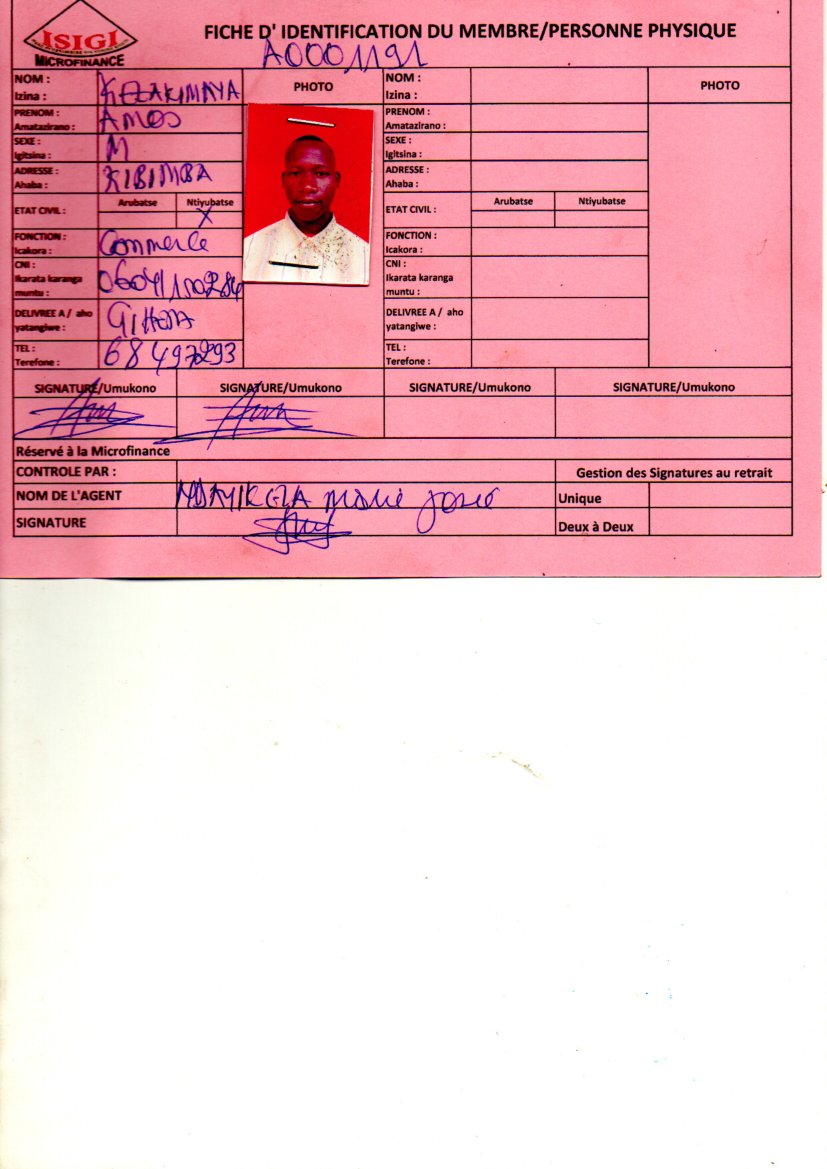 ISIGI
MICROFINANCE
FICHE D' IDENTIFICATION DU MEMBRE/PERSONNE PHYSIQUE
A0001191
NOM :
Izina :
PHOTO
NOM :
Izina :
PHOTO
PRENOM :
Amatazirano :
AMOS
PRENOM :
Amatazirano :
SEXE :
Igitsina :
M
SEXE :
Igitsina :
ADRESSE :
Ahaba :
KIBIMBA
ADRESSE :
Ahaba :
ETAT CIVIL :
Arubatse
Ntiyubatse
X
ETAT CIVIL :
Arubatse
Ntiyubatse
FONCTION :
Icakora :
Commerce
FONCTION :
Icakora :
CNI :
Ikarata karanga
muntu :
CNI :
Ikarata karanga
muntu :
DELIVREE A / aho
yatangiwe :
DELIVREE A / aho
yatangiwe :
TEL :
Terefone :
TEL :
Terefone :
SIGNATURE/Umukono
SIGNATURE/Umukono
SIGNATURE/Umukono
SIGNATURE/Umukono
Réservé à la Microfinance
CONTROLE PAR :
Gestion des Signatures au retrait
NOM DE L'AGENT
Marie José
Unique
SIGNATURE
Deux à Deux